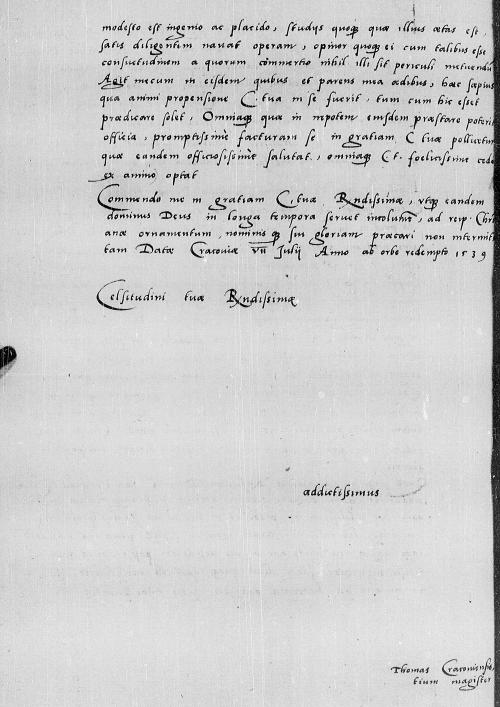 modesto est ingenio ac placido, studijs quoq, quæ illius ætas est,
satis diligentem navat operam, opinor quoq, ei cum talibus esse
consuetudinem a quorum commertio nihil illi sit periculi metuendū
Agit mecum in eisdem quibus et parens mea ædibus, hæc sæpius
qua animi propensione C. tua in se fuerit, tum cum hic esset
prædicare solet, Omniaq, quæ in nepotem eiusdem præstare poterit
officia, promptissime facturam se in gratiam C tuæ pollicetur
quæ eandem officiosissime salutat, omniaq, C t. foelicissime cede
ex animo optat
Commendo me in gratiam C. tuæ Rndissimæ, utq, eandem
dominus Deus in longa tempora servet incolumē, ad reip. Chri
anæ ornamentum, nominis q, sui gloriam præcari non intermit
tam Datæ Cracoviæ VII Julij Anno ab orbe redempto 1539
Celsitudini tuæ Rndissimæ
addictissimus
Thomas Cracoviensis,
tium magister